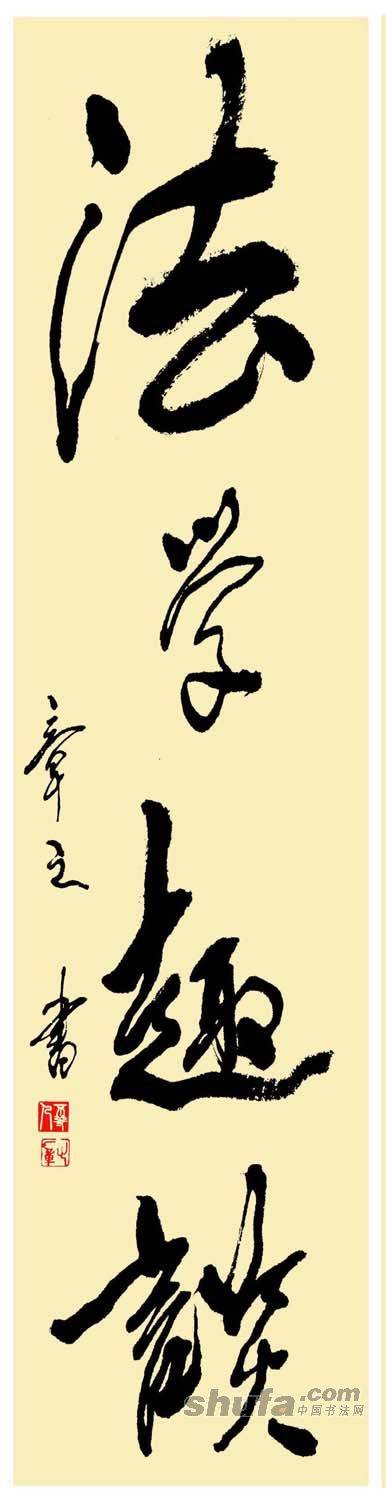 法学趣
章之书
shufa.com
中国书法网